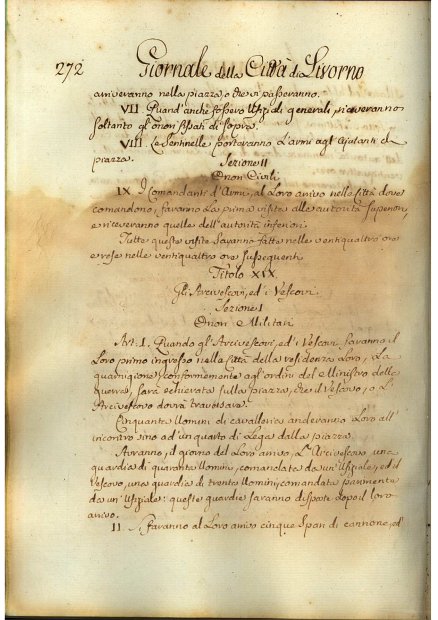 272 Giornale della Città di Livorno
arriveranno nella piazza, o che vi passeranno.
VII Quand'anche fossero Ufiziali generali, riceveranno
soltanto gl'onori fissati di sopra.
VIII. Le Sentinelle porteranno l'armi agl'Ajutanti di
piazza.
Sezione II
Onori Civili
IX. I Comandanti d'Armi, al Loro arrivo nella Città dove
comandono, faranno La prima visita alle autorità superiori,
e riceveranno quelle dell'autorità inferiori.
Tutte queste visite saranno fatte nelle ventiquattro ore
e rese nelle ventiquattro ore susseguenti.
Titolo XIX.
Gli Arcivescovi, ed i Vescovi.
Sezione I
Onori Militari
Art. I. Quando gl'Arcivescovi, ed i Vescovi, faranno il
Loro primo ingresso nella Città della residenza Loro, La
guarnigione, conformemente agl'ordini del Ministro della
guerra, sarà schierata sulla piazza, che il Vescovo, o L'
Arcivescovo dovrà traversare.
Cinquanta Uomini di cavalleria anderanno Loro all'
incontro sino ad un quarto di Lega dalla piazza.
Avranno, il giorno del Loro arrivo, L'Arcivescovo, una
guardia di quaranta Uomini, comandata da un'Ufiziale, ed il
Vescovo, una guardia di trenta Uomini, comandata parimente
da un'Ufiziale: queste guardie saranno disposte dopo il loro
arrivo.
II. Si faranno al Loro arrivo cinque spari di cannone, ed